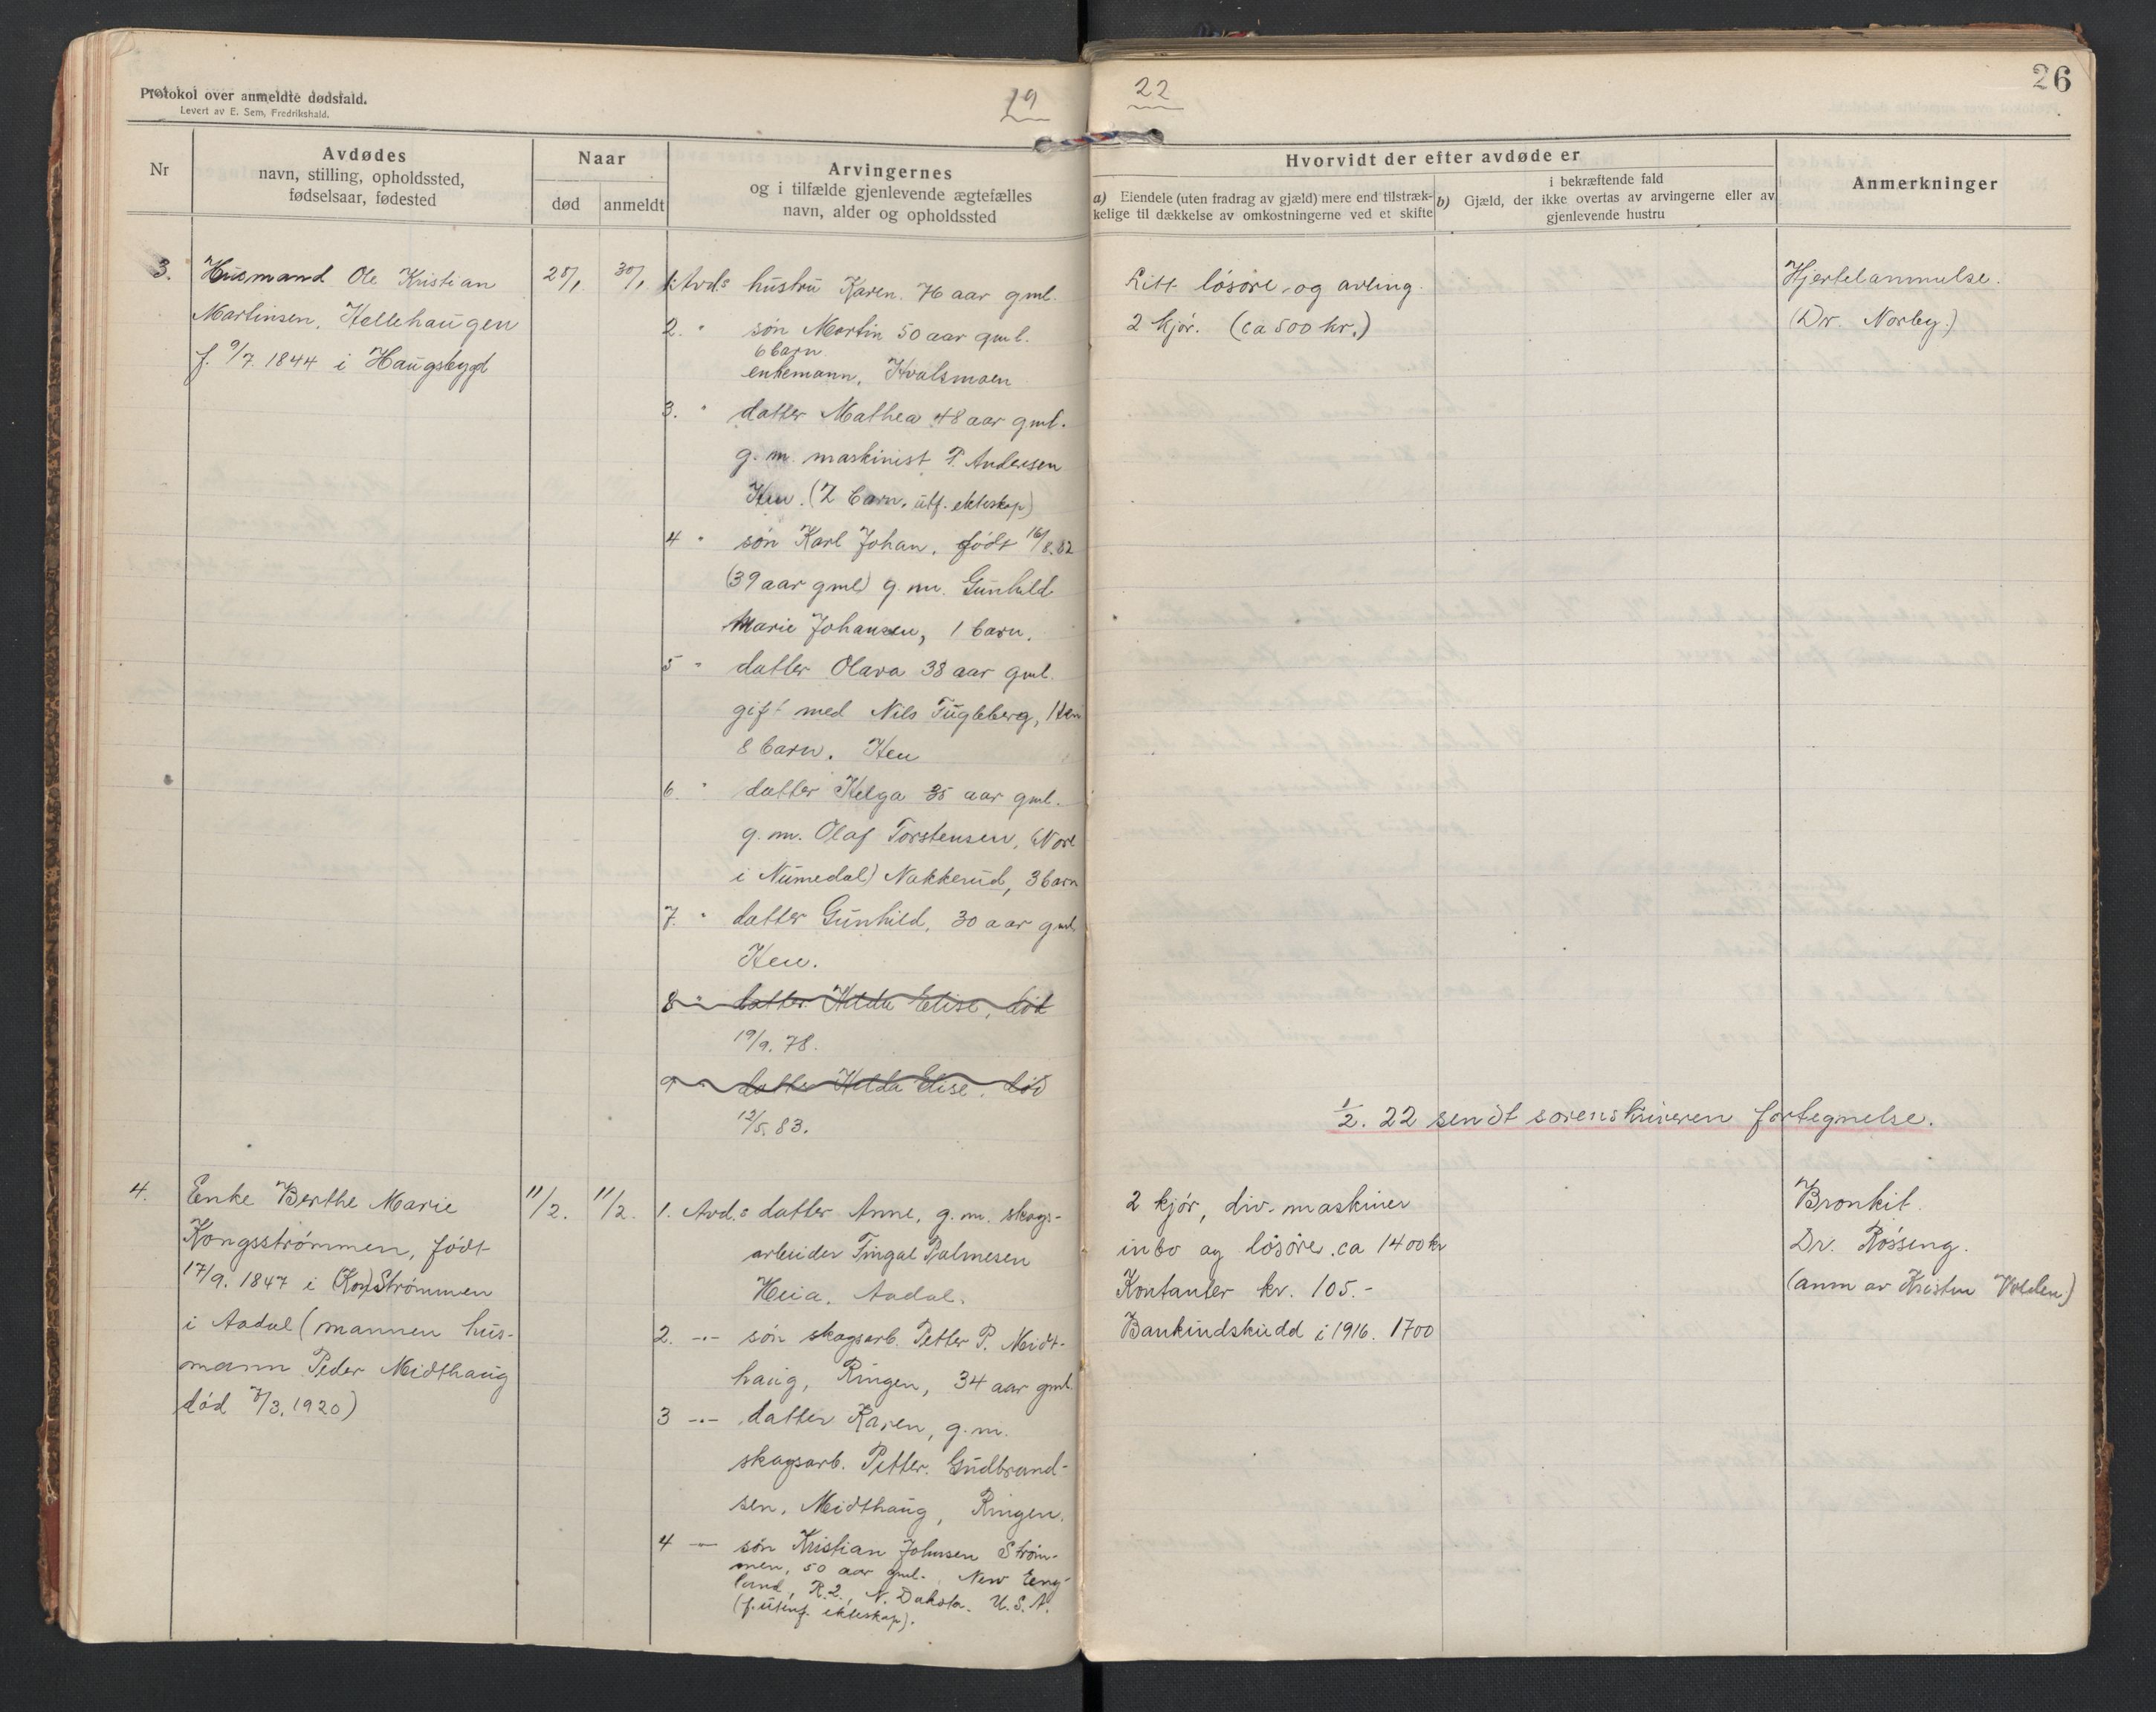 Protokol over anmeldte dødsfald.
Levert av E. Sem, Fredrikshald.
19
22
26
Nr
Avdødes
navn, stilling, opholdssted,
fødselsaar, fødested
Naar
død
anmeldt
Arvingernes
og i tilfælde gjenlevende ægtefælles
navn, alder og opholdssted
Hvorvidt der efter avdøde er
a) Eiendele (uten fradrag av gjæld) mere end tilstræk-
kelige til dækkelse av omkostningerne ved et skifte
i bekræftende fald
b) Gjæld, der ikke overtas av arvingerne eller av
gjenlevende hustru
Anmerkninger
3.
Husmand Ole Kristian
Martinsen, Hellehaugen
f. 9/7. 1844 i Haugsbygd
28/1
30/1
1. Avd.s hustru Karen. 76 aar gml.
2. " søn Martin 50 aar gml.
6 barn
enkemann, Hvalsmoen
3. " datter Mathea 48 aar gml.
g. m. maskinist P. Andersen
Hen. (2 barn. utf. ekteskap)
4 " søn Karl Johan, født 16/8.82
(39 aar gml) g. m. Gunhild
Marie Johansen, 1 barn.
5 " datter Olava 38 aar gml.
gift med Nils Fugleberg, Hen
8 barn. Hen
6. " datter Helga 35 aar gml.
g. m. Olaf Torstensen, (Nore
i Numedal) Nakkerud, 3 barn
7. " datter Gunhild, 30 aar gml
Hen.
8 " datter Hilda Elise, død
19/9. 78.
9 " datter Hilda Elise, død
12/5. 83.
Litt løsøre og avling.
2 kjør. (ca 500 kr.)
Hjertelammelse.
(Dr. Norby.)
1/2. 22 sendt sorenskriveren fortegnelse.
4.
Enke Berthe Marie
Kongsstrømmen, født
17/9. 1847 i (Kon)Strømmen
i Aadal (mannen hus-
mann Peder Midthaug
død 7/3. 1920)
11/2.
11/2.
1. Avd.s datter Anne, g. m. skogs-
arbeider Fingal Palmesen
Heia. Aadal.
2. -"- søn skogsarb. Petter P. Midt-
haug, Ringen, 34 aar gml.
3 -"- datter Karen, g. m.
skogsarb. Petter Gudbrand-
sen, Midthaug, Ringen.
4 -"- søn Kristian Johnsen Strøm-
men, 50 aar gml., New Eng-
land, R. 2., N. Dakota. U. S. A.
(f. utenf. ekteskap).
2 kjør, div. maskiner
inbo og løsøre. ca 1400 kr
Kontanter kr. 105.-
Bankindskudd i 1916. 1700
Bronkit.
Dr. Røsseng.
(anm av Kristen Volden)